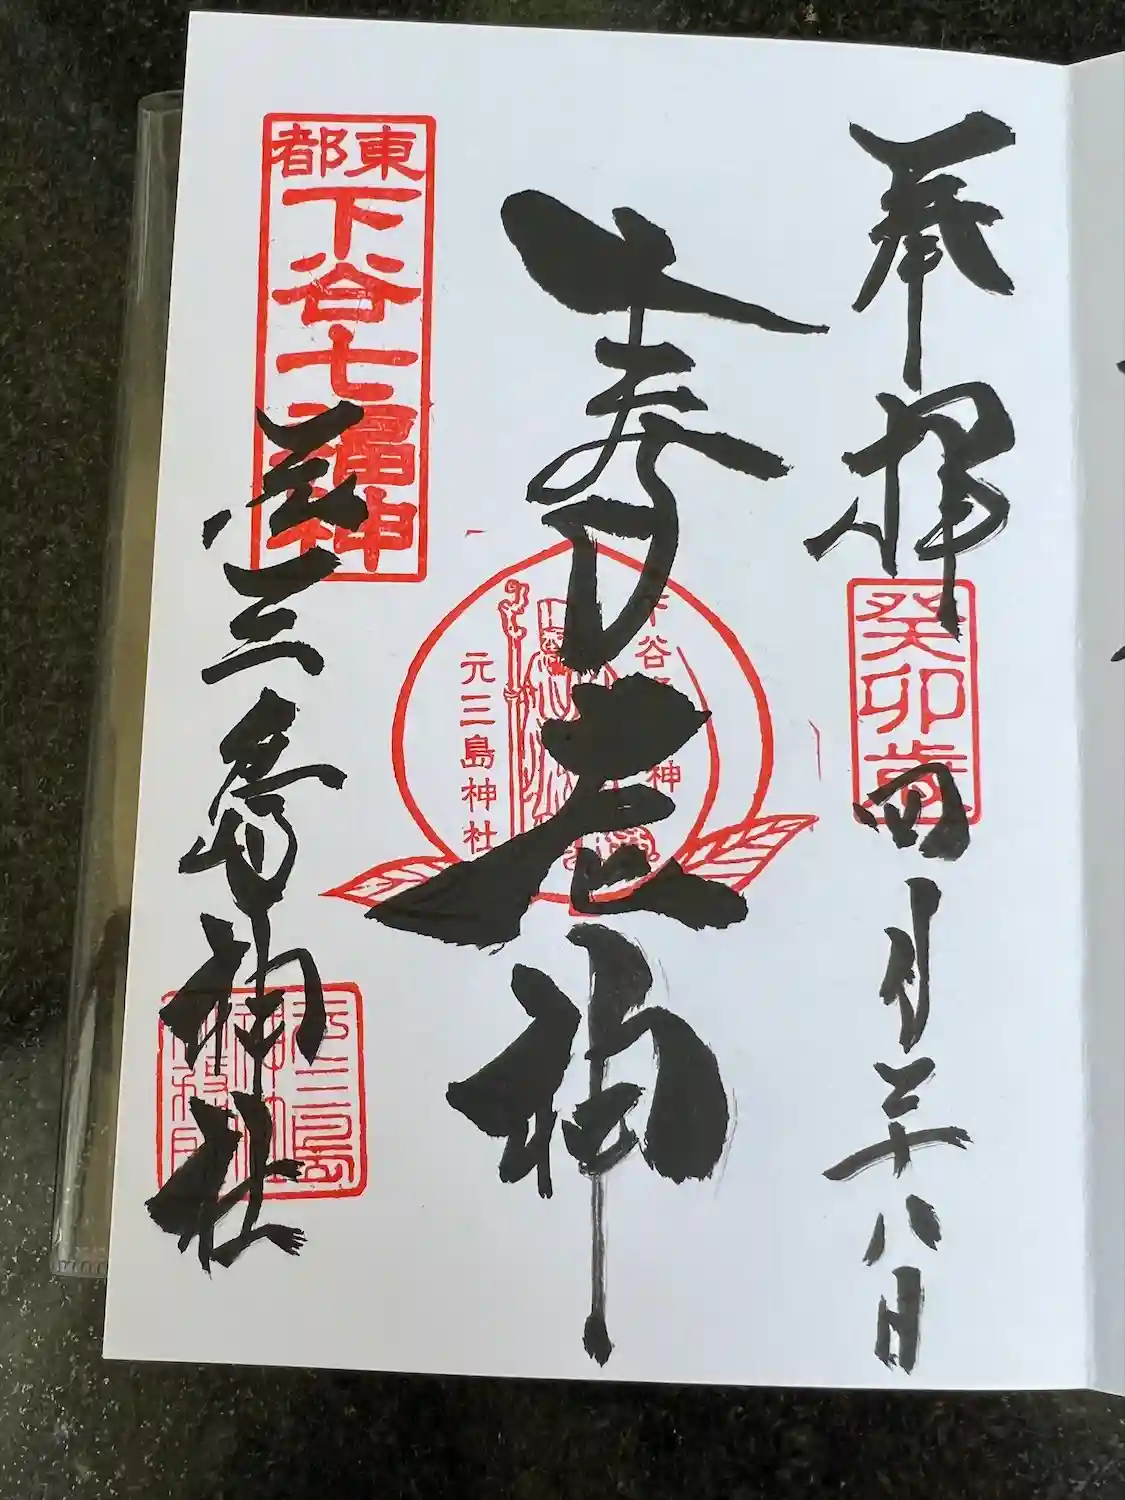 奉拝
癸卯歳
四月二十八日
寿老神
下谷
神
元三島神社
東都
下谷七福神
元三島神社
元三島